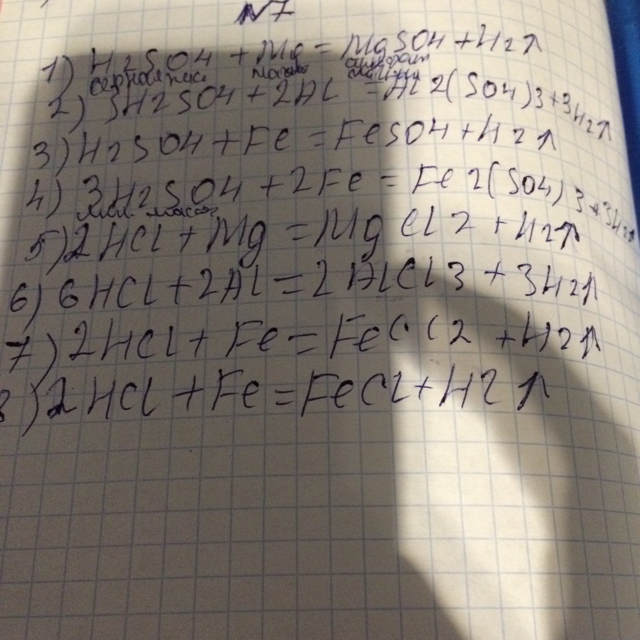 N7
1) H2SO4 + Mg = MgSO4 + H2↑
2) 3H2SO4 + 2Al = Al2(SO4)3 + 3H2↑
3) H2SO4 + Fe = FeSO4 + H2↑
4) 3H2SO4 + 2Fe = Fe2(SO4)3 + 3H2↑
5) 2HCl + Mg = MgCl2 + H2↑
6) 6HCl + 2Al = 2AlCl3 + 3H2↑
7) 2HCl + Fe = FeCl2 + H2↑
8) 2HCl + Fe = FeCl + H2↑